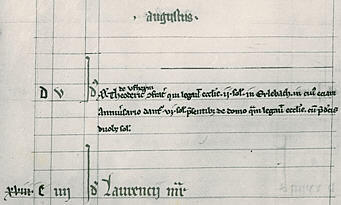 augustus
de vfhegm
D v d
Theodericus obiit qui legauit ecclesie ij sol in Erlebach in cuius eciam
Anniuersario dantur vi sol presentibus de domo quam legauit ecclesie cum predictis
duobus sol
xviij E iiij d Laurencij mr